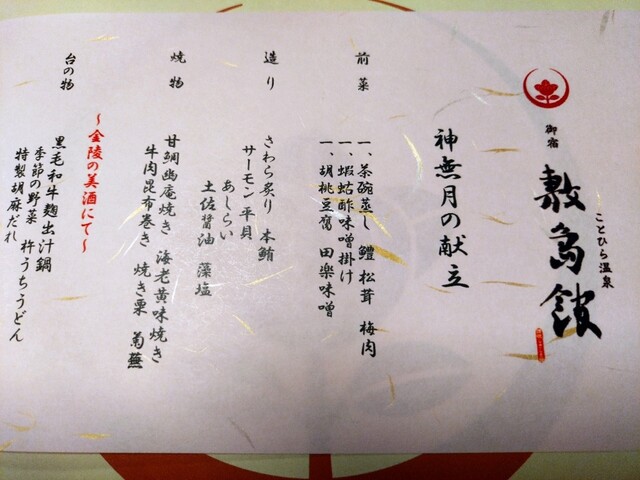 ことひら温泉
御宿
敷島館
神無月の献立
前菜
一、茶碗蒸し 鱧 松茸 梅肉
一、蝦蛄酢味噌掛け
一、胡桃豆腐 田楽味噌
造り
さわら炙り 本鮪
サーモン 平貝
あしらい
土佐醤油 藻塩
焼物
甘鯛幽庵焼き 海老黄味焼き
牛肉昆布巻き 焼き栗 菊蕪
〜金陵の美酒にて〜
台の物
黒毛和牛麹出汁鍋
季節の野菜 杵うちうどん
特製胡麻だれ